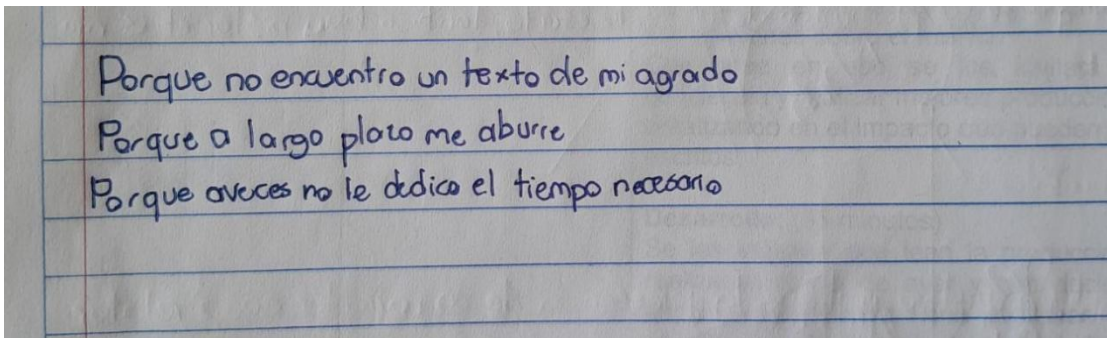 Porque no encuentro un texto de mi agrado
Porque a largo plazo me aburre
Porque aveces no le dedico el tiempo necesario